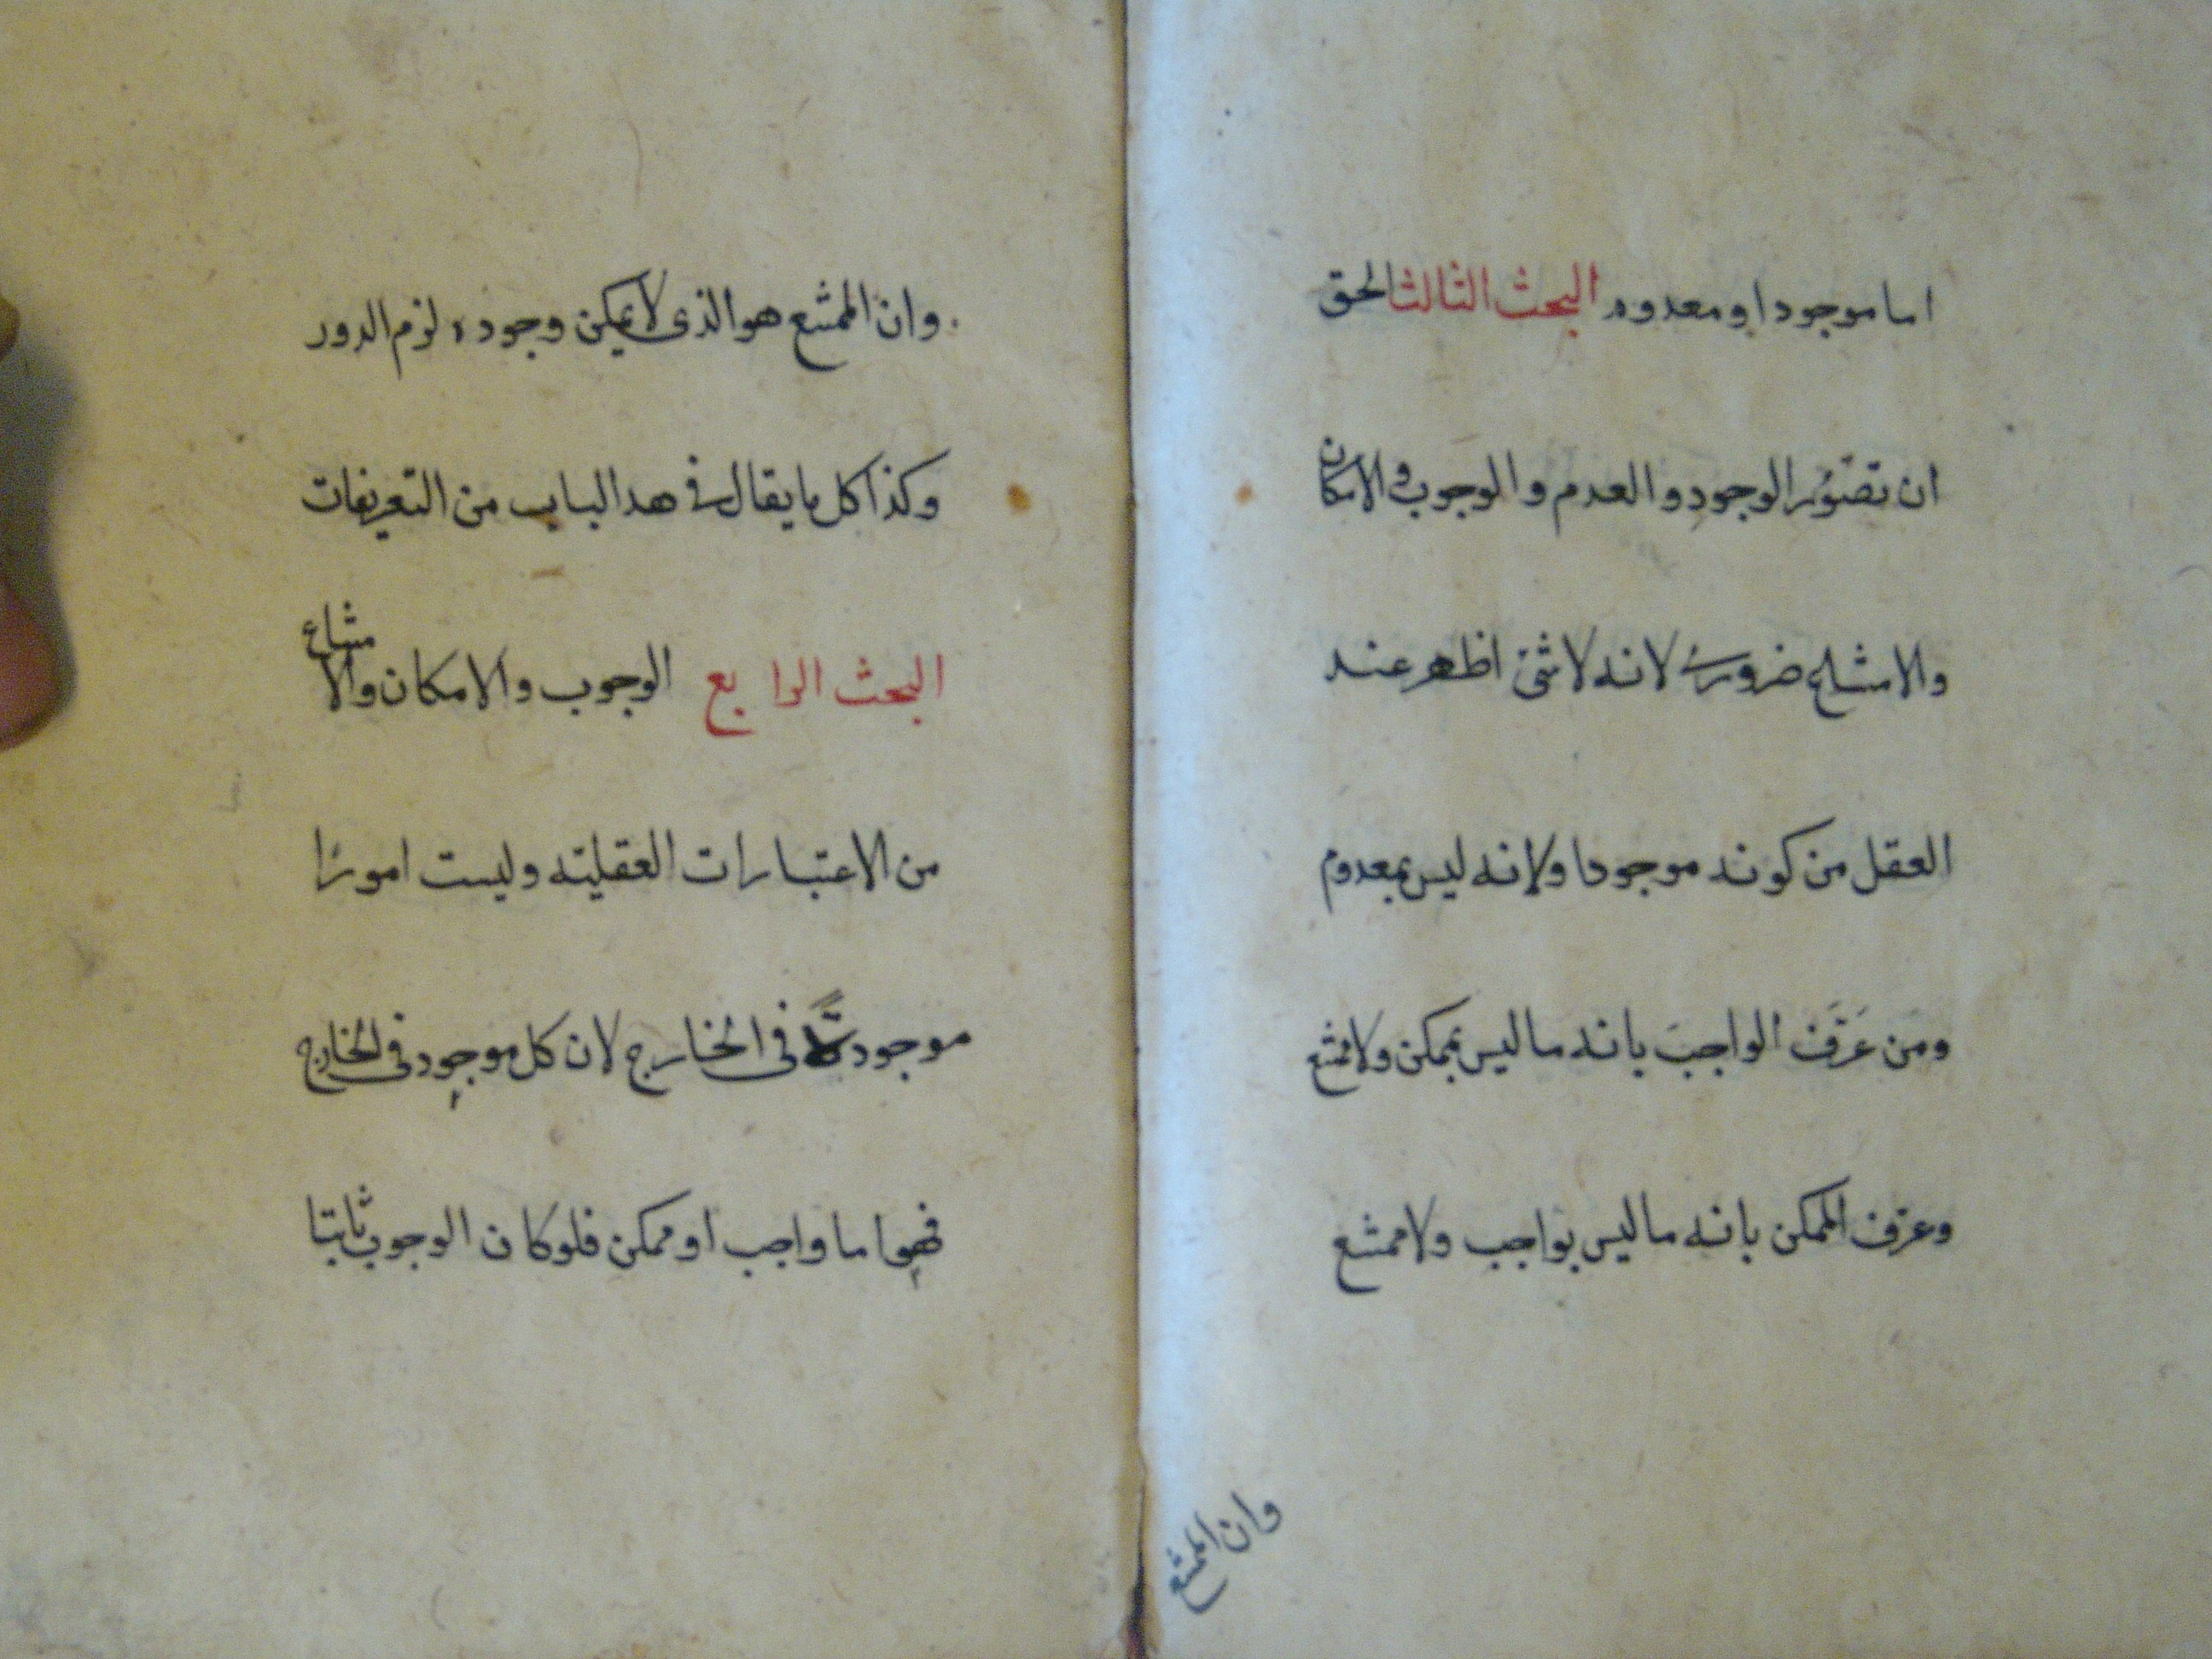 اما موجود او معدوم البحث الثالث الحق
ان تصوّر الوجود والعدم والوجوب والامكان
والامتناع ضرورى لانه لا شئ اظهر عند
العقل من كونه موجودا ولانه ليس بمعدوم
ومن عَرَّفَ الواجبَ بانه ما ليس بممكن ولا ممتنع
وعرّف الممكن بانه ما ليس بواجب ولا ممتنع
وان الممتنع
وان الممتنع هو الذى لا يمكن وجوده لزم الدور
وكذا كل ما يقال فى هدا الباب من التعريفات
البحث الرابع الوجوب والامكان والامتناع
من الاعتبارات العقليّه وليست امورًا
موجودةً فى الخارج لان كل موجود فى الخارج
فهو اما واجب او ممكن فلو كان الوجوب ثابتا